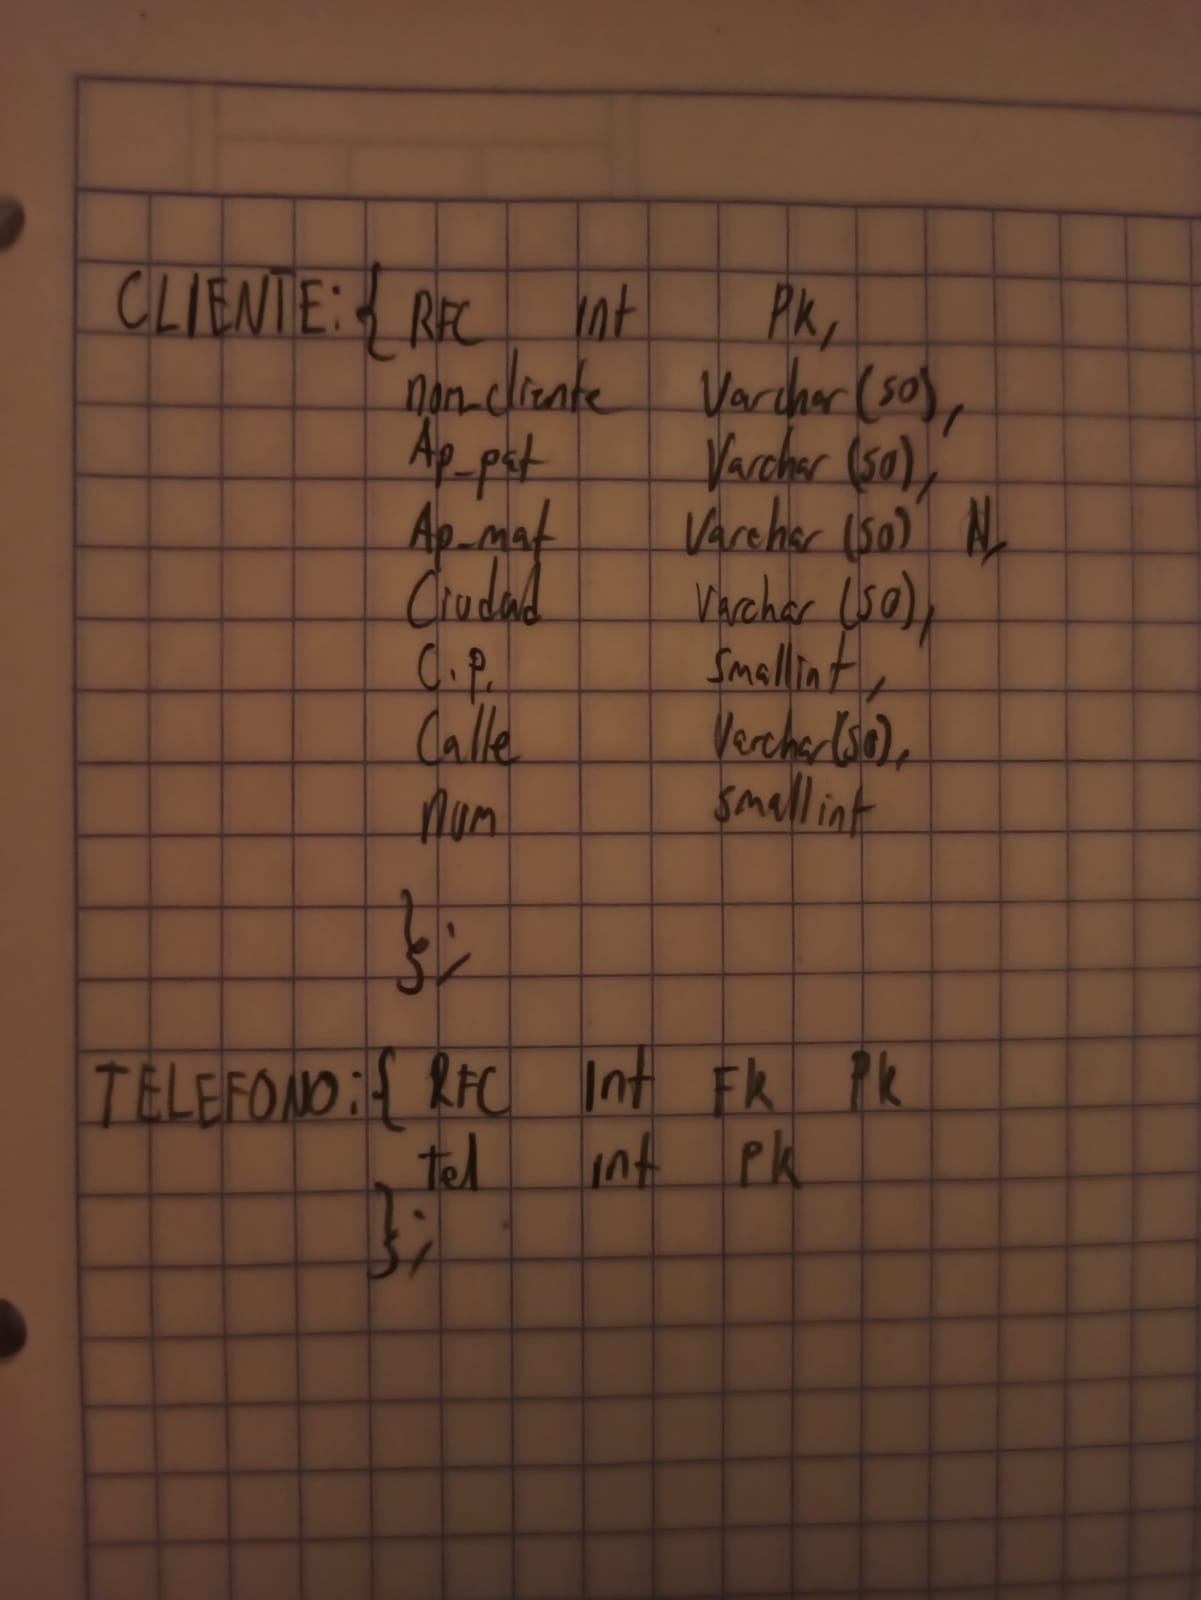 CLIENTE: { RFC int Pk,
nom_cliente Varchar (50),
Ap_pat Varchar (50),
Ap_mat Varchar (50) N,
Ciudad Varchar (50),
C.P. smallint,
Calle Varchar (50),
num smallint
};
TELEFONO: { RFC int Fk Pk
tel int Pk
};